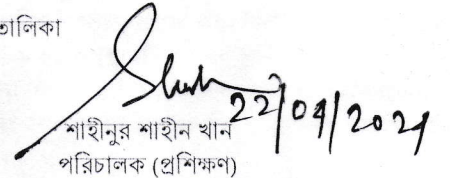 তালিকা
22/09/2021
শাহীনুর শাহীন খান
পরিচালক (প্রশিক্ষণ)